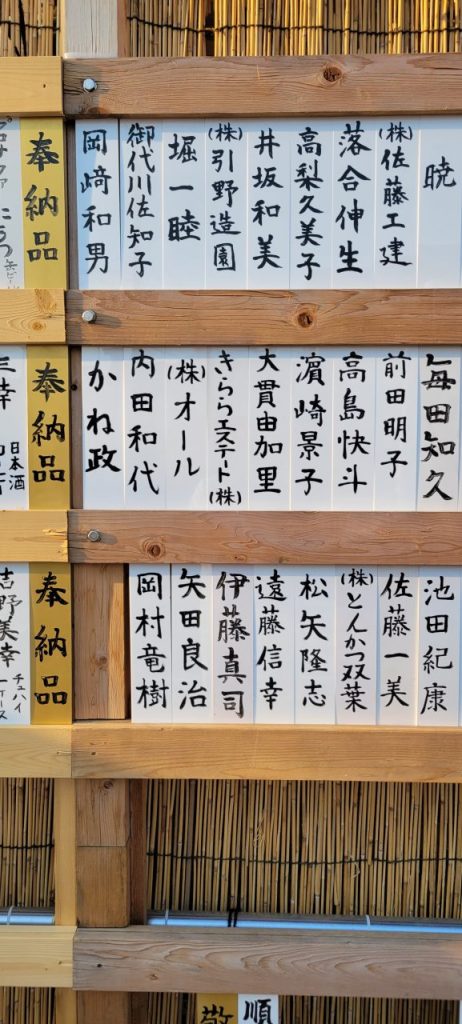 暁
(株)佐藤工建
落合伸生
高梨久美子
井坂和美
(株)引野造園
堀一睦
御代川佐知子
岡﨑和男
奉納品
毎田知久
前田明子
高島快斗
濵崎景子
大貫由加里
きららエステート(株)
(株)オール
内田和代
かね政
奉納品
日本酒
池田紀康
佐藤一美
(株)とんかつ双葉
松矢隆志
遠藤信幸
伊藤真司
矢田良治
岡村竜樹
奉納品
吉野美幸
チュハイ
一ケース
順
敬